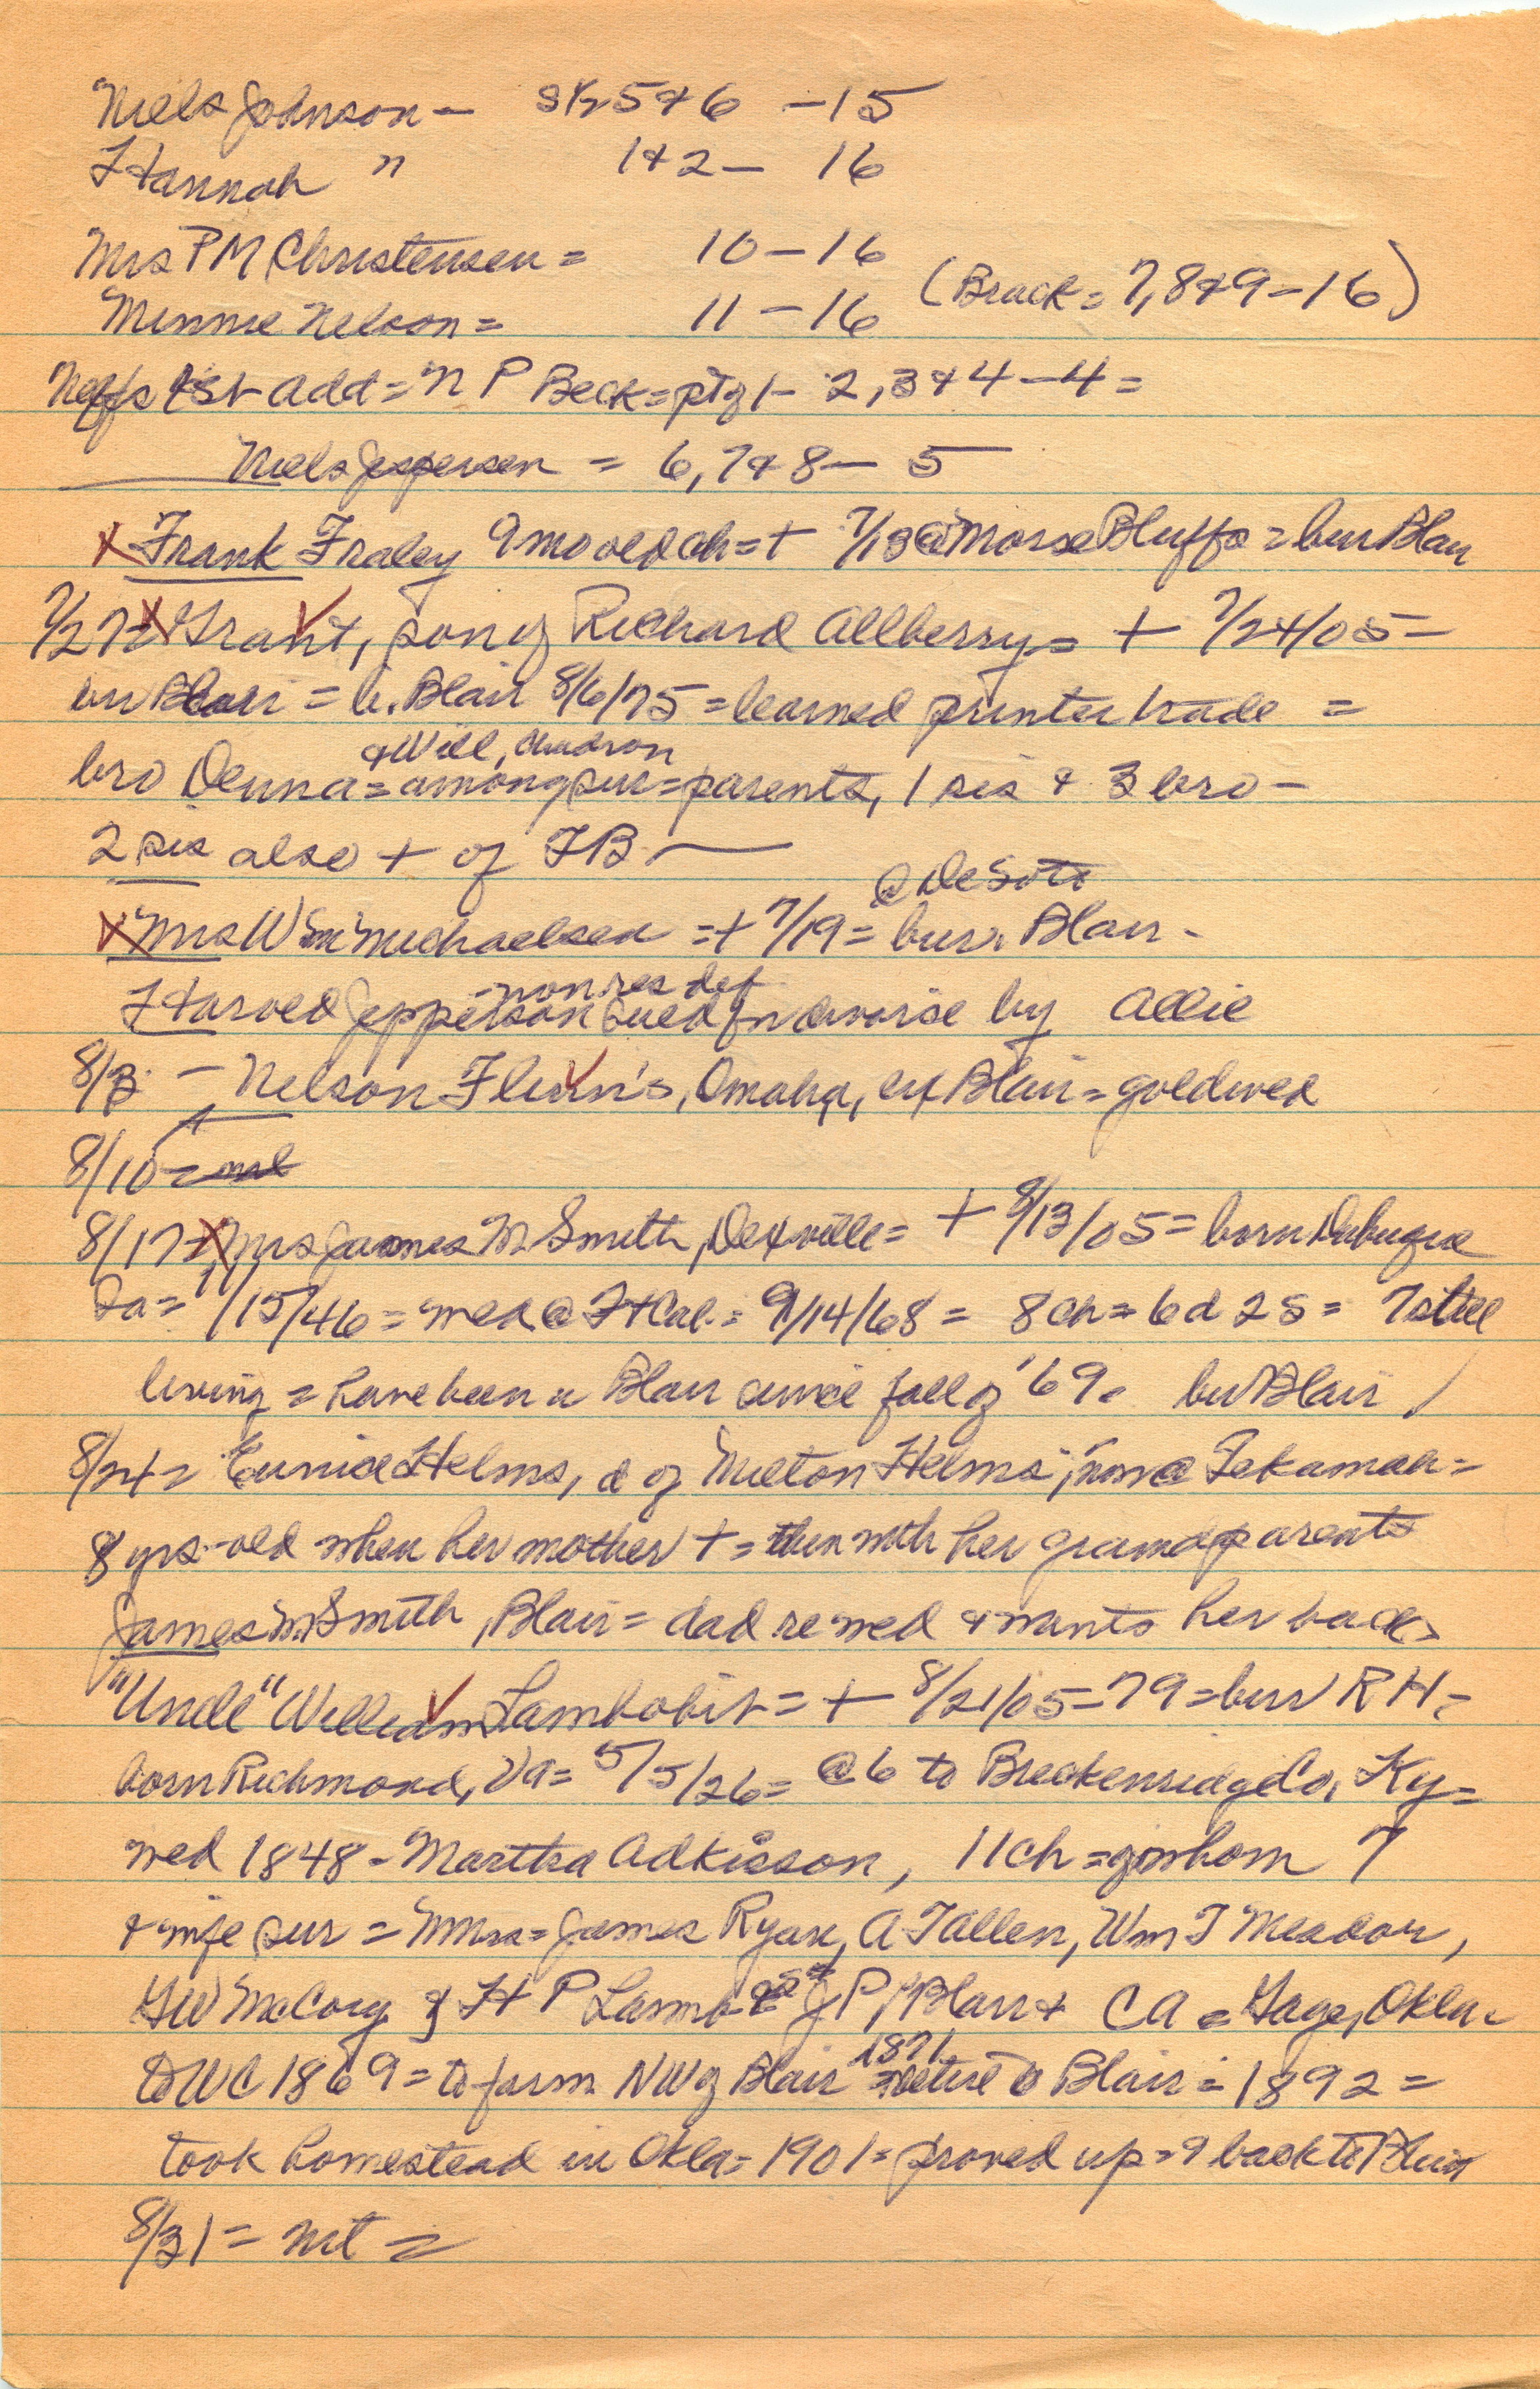 Niels Johnson – S½ 5 & 6 – 15
Hannah " 1 & 2 – 16
Mrs PM Christensen = 10 – 16
Minnie Nelson = 11 – 16 (Brack = 7, 8 & 9 – 16)
Neffs 1st Add = N P Beck = pt of 1 – 2, 3 & 4 – 4 =
Niels Jespersen = 6, 7 & 8 – 5
x Frank Fraley 9 mo old ch = + 7/13 @ Morse Bluffs = bur Blair
7/27 = x Grant, son of Richard Allberry = + 7/24/05 –
in Blair = b. Blair 8/6/75 = learned printer trade =
& Will, Chadron
bro Denna = among sur = parents, 1 sis & 3 bro –
2 sis also + of TB
@ DeSoto
x Mrs Wm Michaelsen = + 7/19 = bur. Blair –
– non res def
Harold Jepperson sued for divorse by Allie
8/3 – Nelson Flenn's, Omaha, ex Blair = gold wed
8/10 =
8/17 = x Mrs James M Smith, Dexville = + 8/13/05 = born Dubuque
Ia = 11/15/46 = wed @ Ft Cal. = 9/14/68 = 8 ch = 6 d 2 s = 7 still
living = have been in Blair since fall of '69 = bur Blair /
8/24 = Eunice Helms, d of Milton Helms, now @ Tekamah =
8 yrs-old when her mother + = then with her grandparents
James M Smith, Blair = dad re wed & wants her back =
"Uncle" William Lambobit = + 8/21/05 = 79 = bur R H =
born Richmond, Va = 5/5/26 = @ 6 to Breckenridge Co, Ky =
wed 1848 – Martha Adkisson, 11 ch = of whom 7
& wife sur = MMrs = James Ryan, A T Allen, Wm T Meador,
GW McCoy & H P & J P, Blair & CA = Gage, Okla =
to WC 1869 = to farm NW of Blair 1871 = retire to Blair = 1892 =
took homestead in Okla = 1901 = proved up = & back to Blair
8/31 = nit =